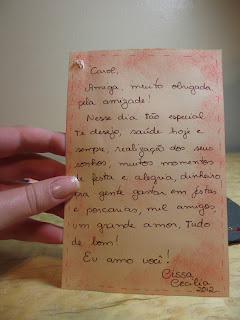 Carol,
Amiga, muito obrigada
pela amizade!
Nesse dia tão especial
te desejo, saúde hoje e
sempre, realização dos seus
sonhos, muitos momentos
de festa e alegria, dinheiro
pra gente gastar em festas
e porcarias, mil amigos,
um grande amor, tudo
de bom!
Eu amo você!
Cissa
Cecília
2012